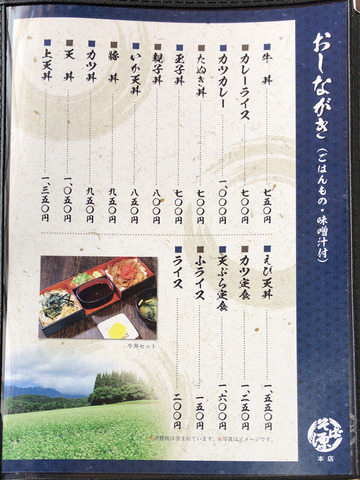 おしながき(ごはんもの・味噌汁付)
牛丼 七五〇円
カレーライス 七〇〇円
カツカレー 一、〇〇〇円
たぬき丼 七〇〇円
玉子丼 七〇〇円
親子丼 八〇〇円
いか天丼 八五〇円
豚丼 九五〇円
カツ丼 九五〇円
天丼 一、〇五〇円
上天丼 一、三五〇円
えび天丼 一、五五〇円
カツ定食 一、二五〇円
天ぷら定食 一、六〇〇円
小ライス 一五〇円
ライス 二〇〇円
牛丼セット
※消費税は含まれています。※写真はイメージです。
本店